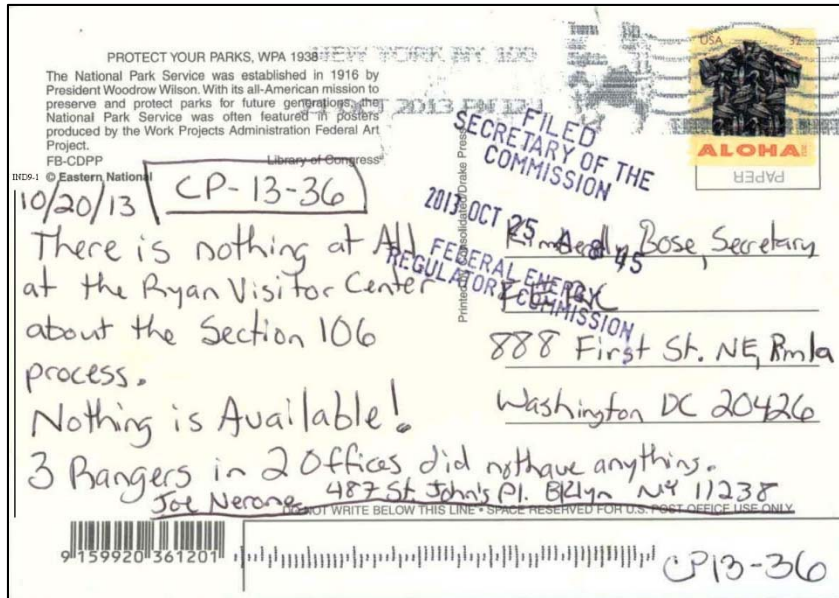 PROTECT YOUR PARKS, WPA 1938
The National Park Service was established in 1916 by
President Woodrow Wilson. With its all-American mission to
preserve and protect parks for future generations, the
National Park Service was often featured in posters
produced by the Work Projects Administration Federal Art
Project.
FB-CDPP Library of Congress
© Eastern National
IND9-1
NEW YORK NY 100
OCT 2013 PM
USA 32
ALOHA
PAPER
FILED
SECRETARY OF THE
COMMISSION
2013 OCT 25 A 8:45
FEDERAL ENERGY
REGULATORY COMMISSION
Printed by Consolidated/Drake Press
10/20/13 CP-13-36
There is nothing at All
at the Ryan Visitor Center
about the Section 106
process.
Nothing is Available!
3 Rangers in 2 Offices did not have anything.
Joe Nerone 487 St. John's Pl. BKlyn NY 11238
Kimberly Bose, Secretary
888 First St. NE, Rm1a
Washington DC 20426
DO NOT WRITE BELOW THIS LINE • SPACE RESERVED FOR U.S. POST OFFICE USE ONLY
9 159920 361201
CP13-36